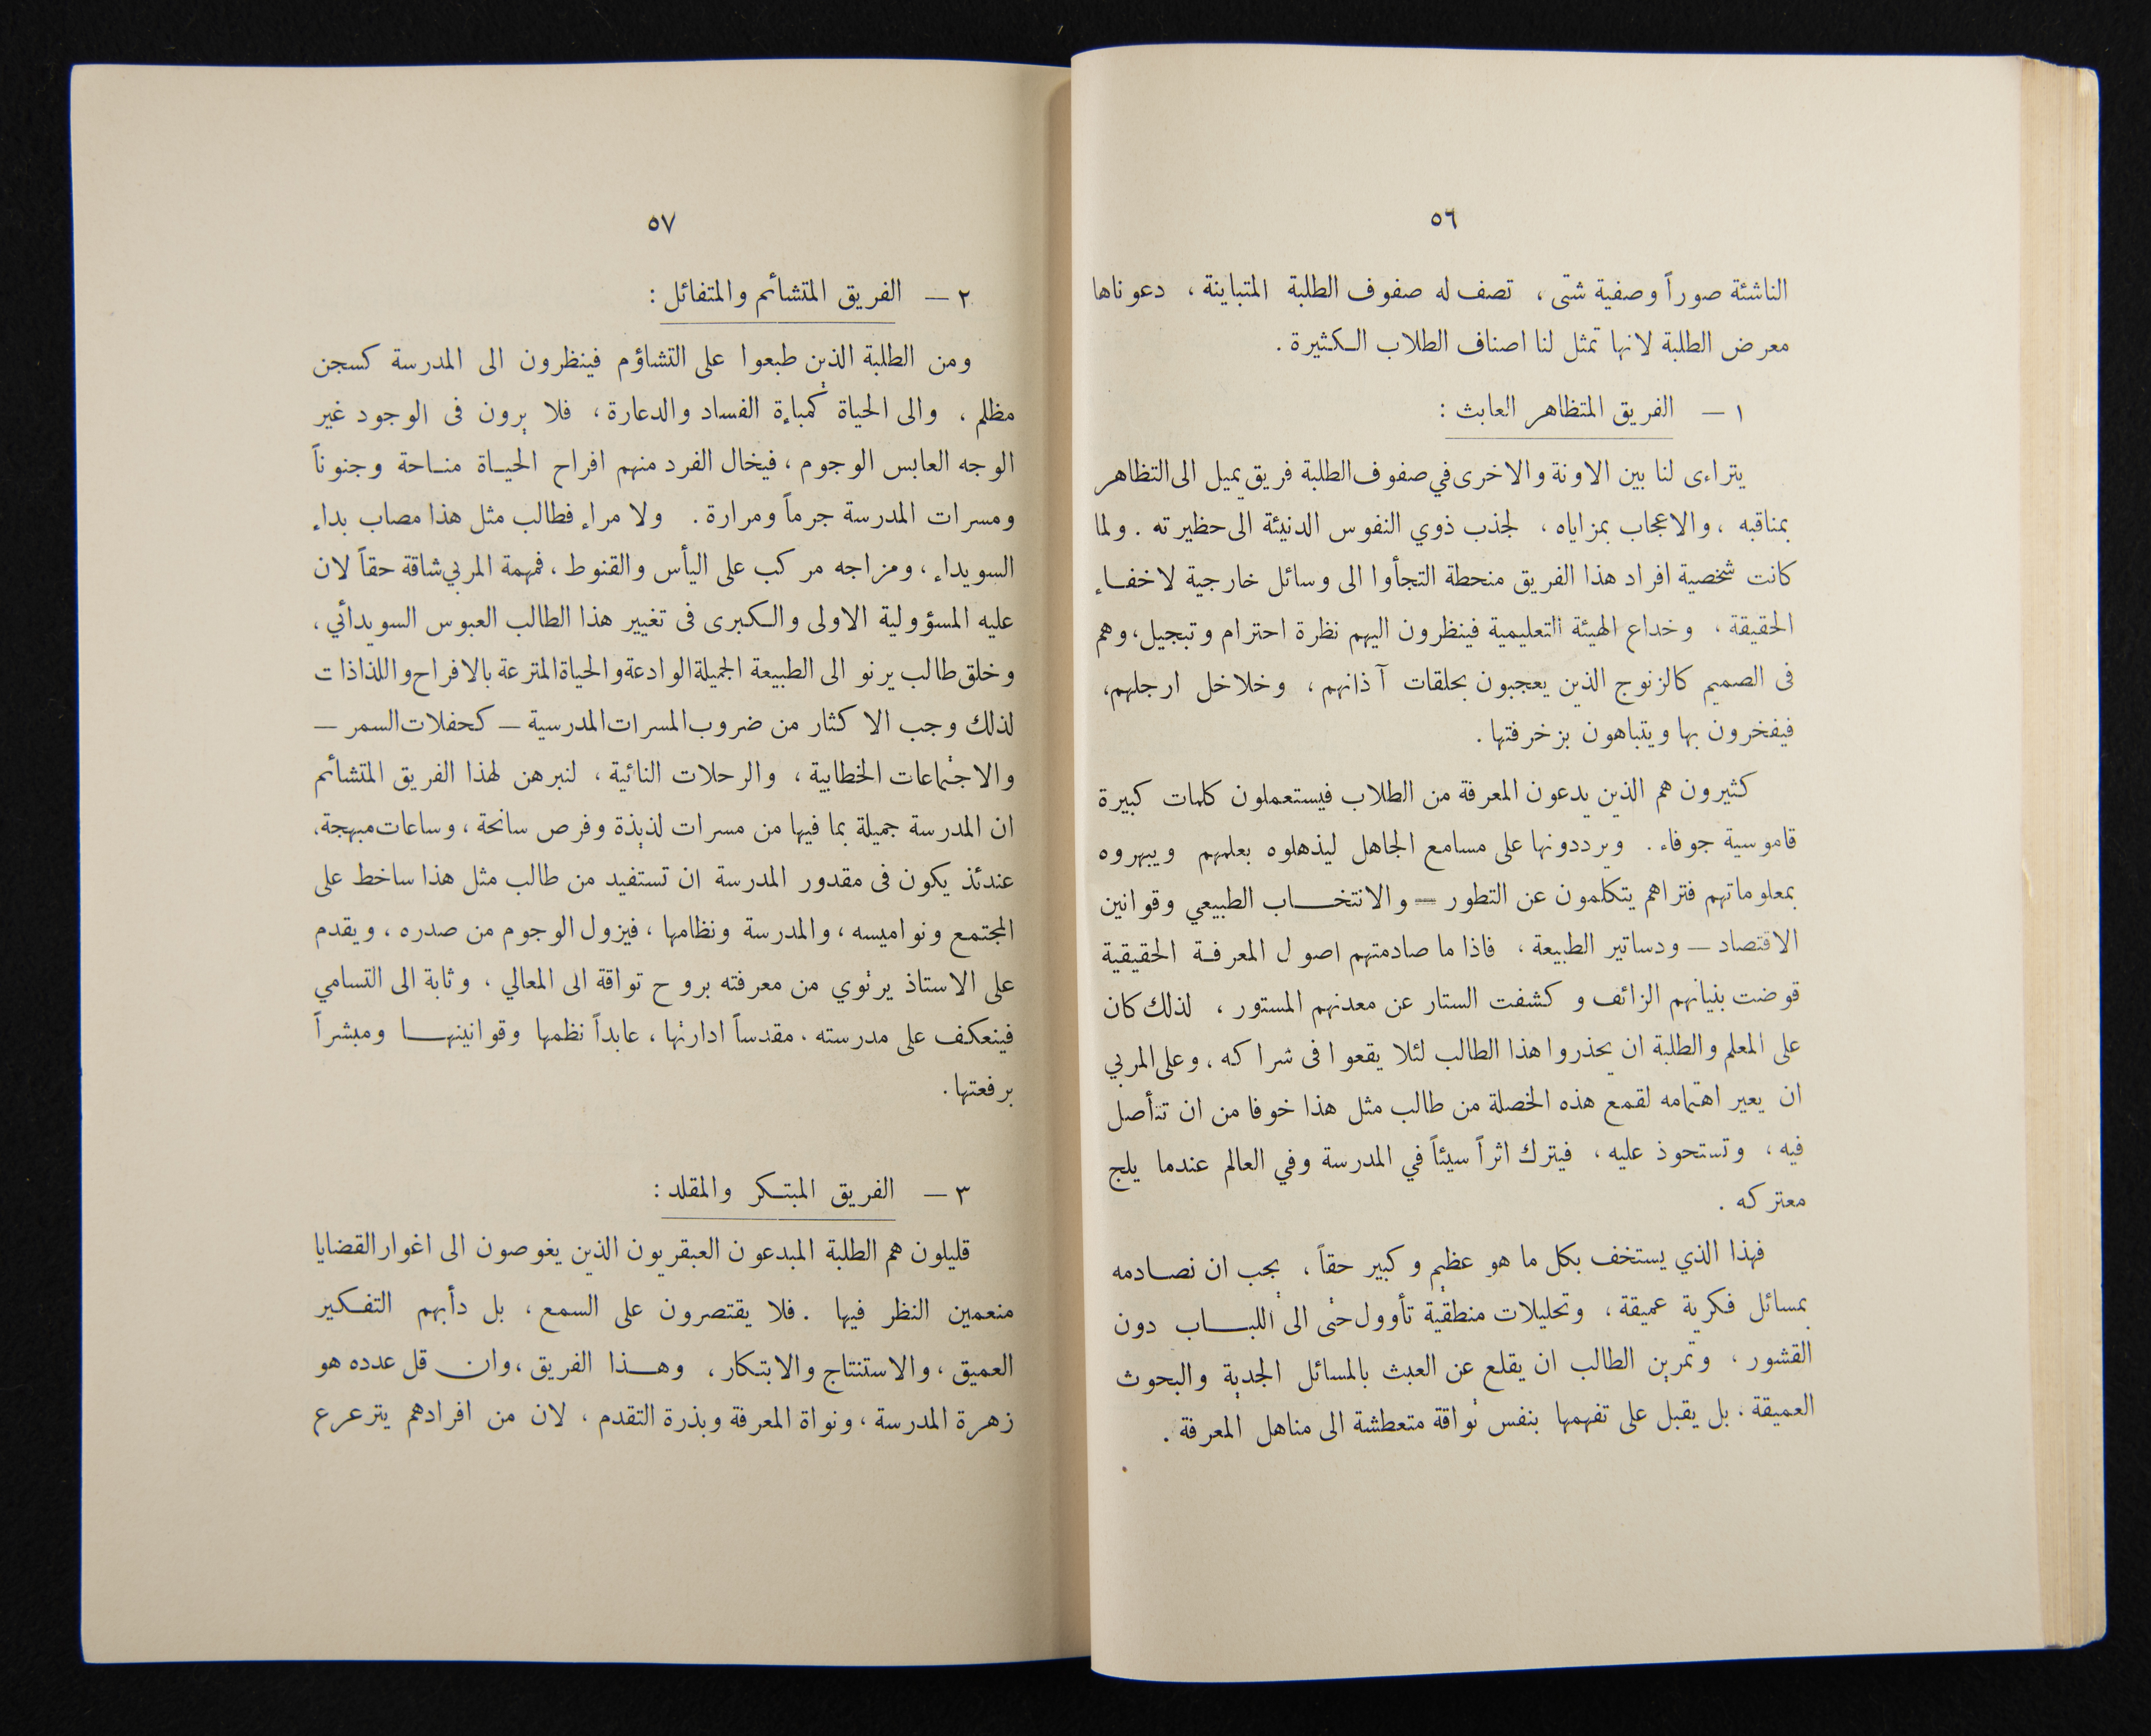 ٥٦
الناشئة صوراً وصفية شتى ، تصف له صفوف الطلبة المتباينة ، دعوناها
معرض الطلبة لانها تمثل لنا اصناف الطلاب الكثيرة .
١ — الفريق المتظاهر العابث :
يتراءى لنا بين الاونة والاخرى في صفوف الطلبة فريق يميل الى التظاهر
بمناقبه ، والاعجاب بمزاياه ، لجذب ذوي النفوس الدنيئة الى حظيرته . ولما
كانت شخصية افراد هذا الفريق منحطة التجأوا الى وسائل خارجية لاخفاء
الحقيقة ، وخداع الهيئة التعليمية فينظرون اليهم نظرة احترام وتبجيل ، وهم
فى الصميم كالزنوج الذين يعجبون بحلقات آذانهم ، وخلاخل ارجلهم ،
فيفخرون بها ويتباهون بزخرفتها .
كثيرون هم الذين يدعون المعرفة من الطلاب فيستعملون كلمات كبيرة
قاموسية جوفاء . ويرددونها على مسامع الجاهل ليذهلوه بعلمهم ويبهروه
بمعلوماتهم فتراهم يتكلمون عن التطور — والانتخاب الطبيعي وقوانين
الاقتصاد — ودساتير الطبيعة ، فاذا ما صادمتهم اصول المعرفة الحقيقية
قوضت بنيانهم الزائف وكشفت الستار عن معدنهم المستور ، لذلك كان
على المعلم والطلبة ان يحذروا هذا الطالب لئلا يقعوا فى شراكه ، وعلى المربي
ان يعير اهتمامه لقمع هذه الخصلة من طالب مثل هذا خوفا من ان تتأصل
فيه ، وتستحوذ عليه ، فيترك اثراً سيئاً في المدرسة وفي العالم عندما يلج
معتركه .
فهذا الذي يستخف بكل ما هو عظيم وكبير حقاً ، يجب ان نصادمه
بمسائل فكرية عميقة ، وتحليلات منطقية تأوول حتى الى اللباب دون
القشور ، وتمرين الطالب ان يقلع عن العبث بالمسائل الجدية والبحوث
العميقة . بل يقبل على تفهمها بنفس تواقة متعطشة الى مناهل المعرفة .
٥٧
٢ — الفريق المتشائم والمتفائل :
ومن الطلبة الذين طبعوا على التشاؤم فينظرون الى المدرسة كسجن
مظلم ، والى الحياة كمباءة الفساد والدعارة ، فلا يرون فى الوجود غير
الوجه العابس الوجوم ، فيخال الفرد منهم افراح الحياة مناحة وجنوناً
ومسرات المدرسة جرماً ومرارة . ولا مراء فطالب مثل هذا مصاب بداء
السويداء ، ومزاجه مركب على اليأس والقنوط ، فمهمة المربي شاقة حقاً لان
عليه المسؤولية الاولى والكبرى فى تغيير هذا الطالب العبوس السويدائي ،
وخلق طالب يرنو الى الطبيعة الجميلة الوادعة والحياة المترعة بالافراح واللذاذات
لذلك وجب الاكثار من ضروب المسرات المدرسية — كحفلات السمر —
والاجتماعات الخطابية ، والرحلات النائية ، لنبرهن لهذا الفريق المتشائم
ان المدرسة جميلة بما فيها من مسرات لذيذة وفرص سانحة ، وساعات مبهجة ،
عندئذ يكون فى مقدور المدرسة ان تستفيد من طالب مثل هذا ساخط على
المجتمع ونواميسه ، والمدرسة ونظامها ، فيزول الوجوم من صدره ، ويقدم
على الاستاذ يرتوي من معرفته بروح تواقة الى المعالي ، وثابة الى التسامي
فينعكف على مدرسته . مقدساً ادارتها ، عابداً نظمها وقوانينها ومبشراً
برفعتها .
٣ — الفريق المبتكر والمقلد :
قليلون هم الطلبة المبدعون العبقريون الذين يغوصون الى اغوار القضايا
منعمين النظر فيها . فلا يقتصرون على السمع ، بل دأبهم التفكير
العميق ، والاستنتاج والابتكار ، وهذا الفريق ، وان قل عدده هو
زهرة المدرسة ، ونواة المعرفة وبذرة التقدم ، لان من افرادهم يترعرع